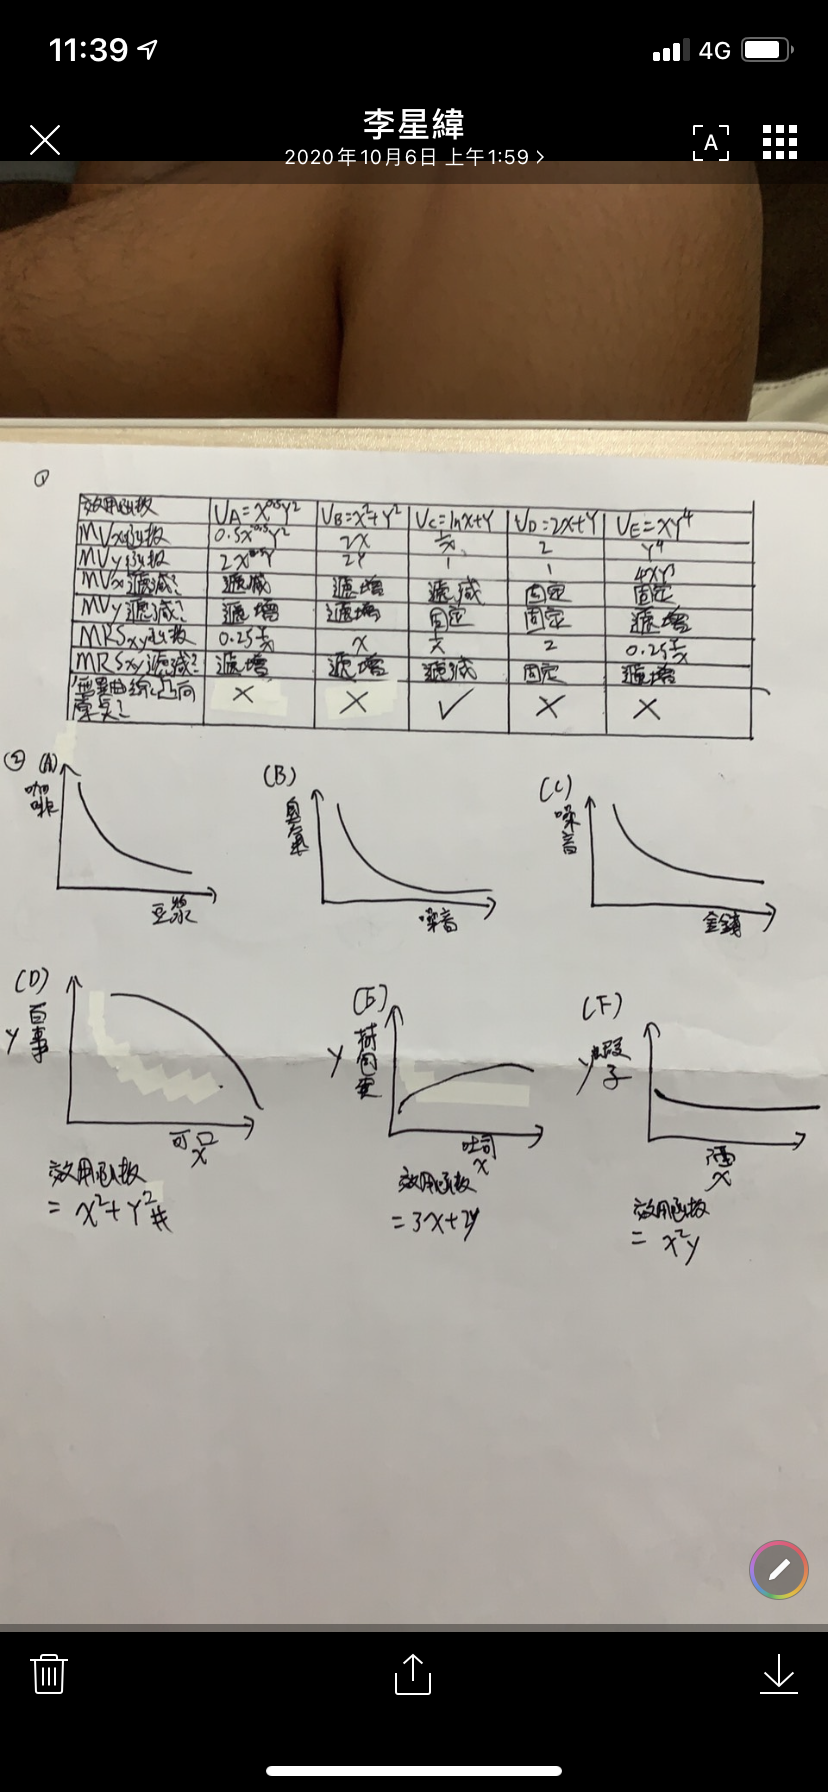 11:39
4G
李星緯
2020年10月6日 上午1:59
A
①
效用函數 UA=X^0.5Y² UB=X²+Y² UC=lnX+Y UD=2X+Y UE=XY⁴
MUx函數 0.5X^-0.5Y² 2X 1/X 2 Y⁴
MUy函數 2X^0.5Y 2Y 1 1 4XY³
MUx遞減? 遞減 遞增 遞減 固定 固定
MUy遞減? 遞增 遞增 固定 固定 遞增
MRSxy函數 0.25Y/X X 1/X 2 0.25Y/X
MRSxy遞減? 遞增 遞增 遞減 固定 遞增
無異曲線凸向原點? × × ✓ × ×
② (A) 咖啡 豆漿
(B) 臭氣 噪音
(C) 噪音 金錢
(D) Y 百事 可口 X
效用函數
= X²+Y² #
(E) Y 荷包蛋 吐司 X
效用函數
=3X+2Y
(F) Y 骰子 X
效用函數
= X²y